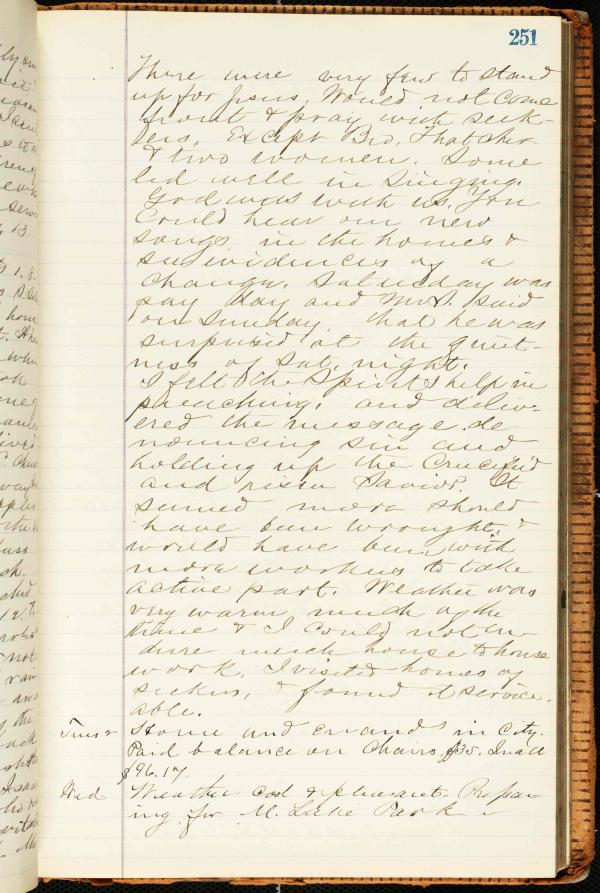 251
There were very few to stand
up for Jesus. Would not come
front & pray with seek-
ers. Except Bro. Thatcher
& two women. Some
led well in singing.
God was with us. You
could hear our new
songs in the homes &
see evidences of a
change. Saturday was
pay day and Mr. S. said
on Sunday that he was
surprised at the quiet-
ness of Sat. night.
I felt the Spirit's help in
preaching, and deliv-
ered the message de
nouncing sin and
holding up the Crucified
and risen Savior. It
seemed more should
have been wrought, &
would have been with
more workers to take
active part. Weather was
very warm much of the
time & I could not en
dure much house to house
work. I visited homes of
seekers, & found it service-
able.
Tues Home and errands in City.
Paid balance on Chairs, $35. In all
$96.17.
Wed Weather cool & pleasant. Prepar-
ing for M. Lake Park